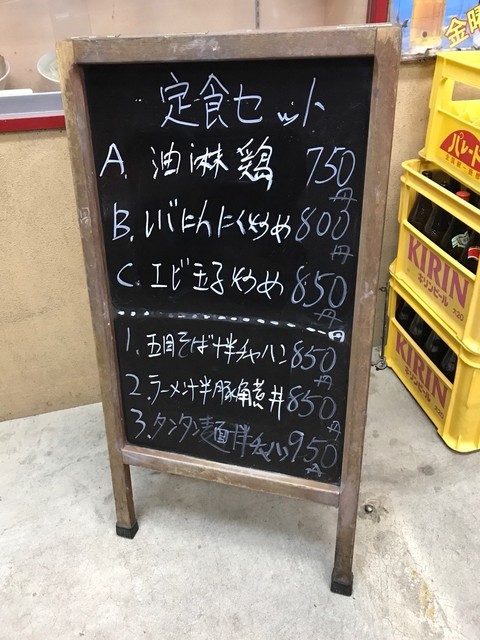 定食セット
A. 油淋鶏 750円
B. レバにんにく炒め 800円
C. エビ玉子炒め 850円
1. 五目そば+半チャーハン 850円
2. ラーメン+半豚角煮丼 850円
3. タンタン麺+半チャーハン 950円
金曜
パレード
KIRIN
キリンビール
KIRIN
キリンビール